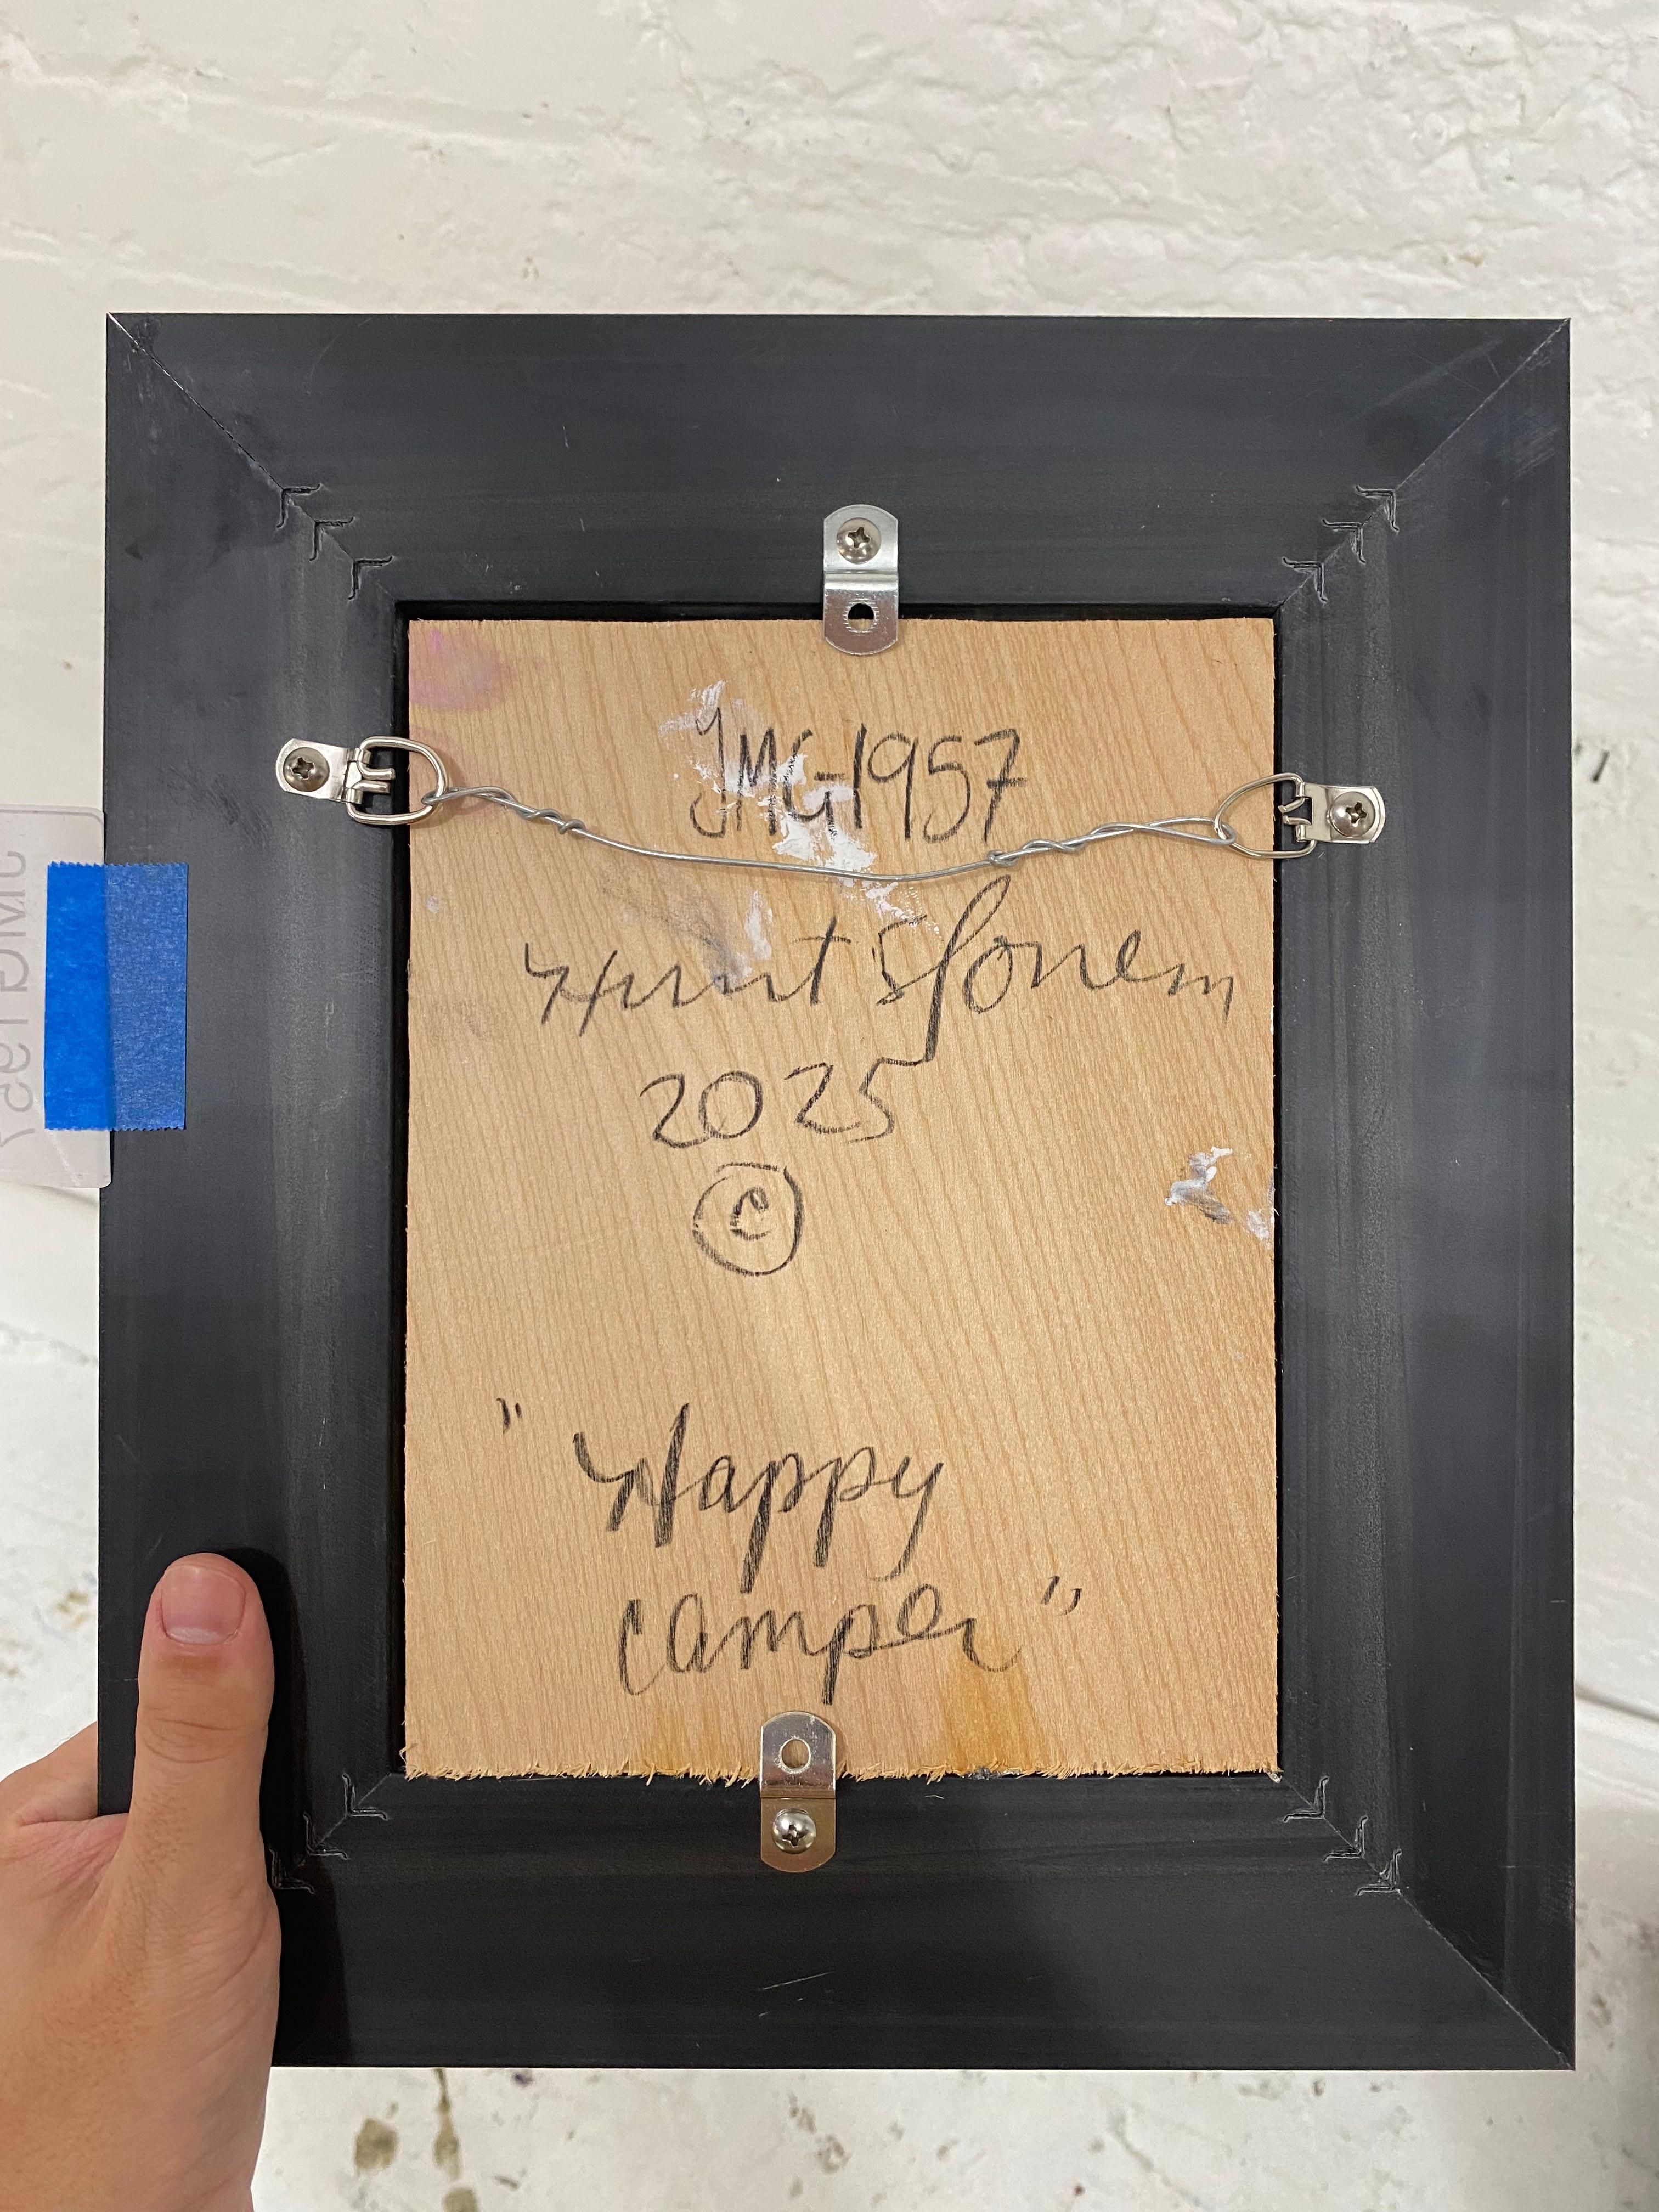 JMG1957
Hunt Slonem
2025
©
"Happy
camper"
JMG1957